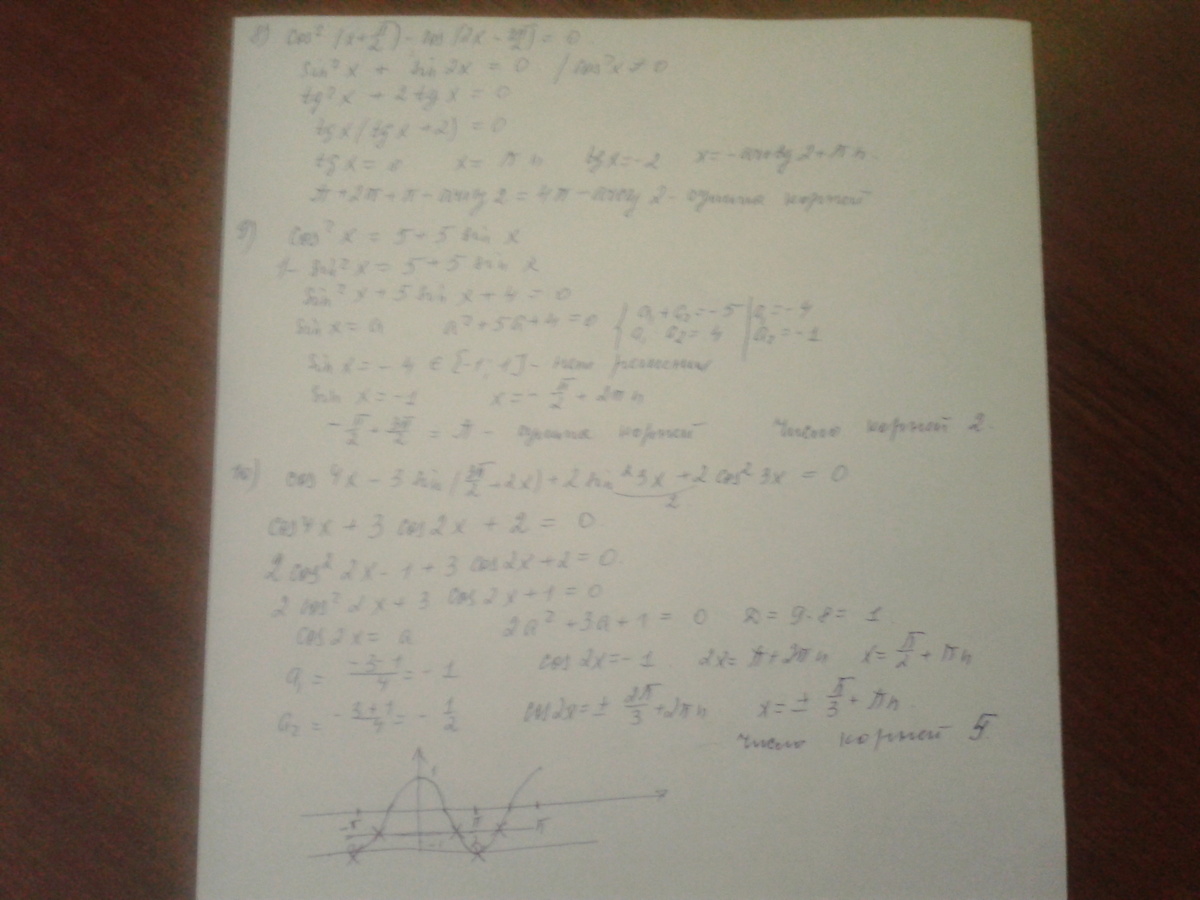 8) cos² (x + π/2) - cos (2x - 3π/2) = 0
sin² x + sin 2x = 0 / cos² x ≠ 0
tg² x + 2 tg x = 0
tg x (tg x + 2) = 0
tg x = 0 x = πn tg x = -2 x = -arctg 2 + πn.
π + 2π + π - arctg 2 = 4π - arctg 2 - сумма корней
9) cos² x = 5 + 5 sin x
1 - sin² x = 5 + 5 sin x
sin² x + 5 sin x + 4 = 0
sin x = a a² + 5a + 4 = 0 { a₁ + a₂ = -5 | a₁ = -4
a₁ a₂ = 4 | a₂ = -1
sin x = -4 ∈ [-1, 1] - нет решения
sin x = -1 x = - π/2 + 2πn
- π/2 + 3π/2 = π - сумма корней Число корней 2.
10) cos 4x - 3 sin (3π/2 - 2x) + 2 sin² 3x + 2 cos² 3x = 0
2
cos 4x + 3 cos 2x + 2 = 0
2 cos² 2x - 1 + 3 cos 2x + 2 = 0
2 cos² 2x + 3 cos 2x + 1 = 0
cos 2x = a 2a² + 3a + 1 = 0 D = 9 - 8 = 1
a₁ = (-3-1)/4 = -1 cos 2x = -1 2x = π + 2πn x = π/2 + πn
a₂ = -(3+1)/4 = - 1/2 cos 2x = ± 2π/3 + 2πn x = ± π/3 + πn.
Число корней 5
1
-π/2 π/2 π
-1